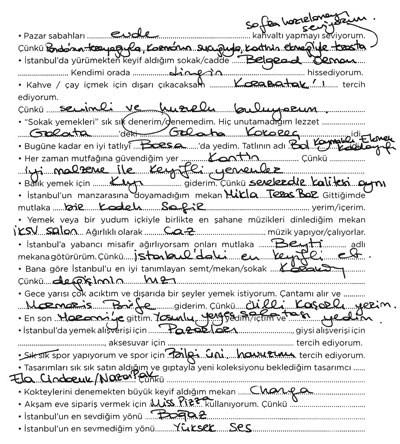 sofra hazırlamayı seviyorum.
• Pazar sabahları evde kahvaltı yapmayı seviyorum.
Çünkü
• İstanbul'da yürümekten keyif aldığım sokak/cadde Belgrad Ormanı
Kendimi orada dingin hissediyorum.
• Kahve / çay içmek için dışarı çıkacaksam Karabatak'ı tercih
ediyorum.
Çünkü samimi ve huzurlu buluyorum.
• "Sokak yemekleri" sık sık denerim/denemedim. Hiç unutamadığım lezzet
Galata 'deki Galata Kokoreç idi.
• Bugüne kadar en iyi tatlıyı Borsa 'da yedim. Tatlının adı Bol Kaymaklı Ekmek Kadayıfı
• Her zaman mutfağına güvendiğim yer Kantin Çünkü
iyi malzeme ile keyifli yemekler
• Balık yemek için Kıyı giderim. Çünkü senelerdir kalitesi aynı
• İstanbul'un manzarasına doyamadığım mekan Mikla Teras Bar Gittiğimde
mutlaka bir kadeh yerim/içerim.
• Yemek veya bir yudum içkiyle birlikte en şahane müzikleri dinlediğim mekan
İKSV Salon. Ağırlıklı olarak Caz müzik yapıyor/çalıyorlar.
• İstanbul'a yabancı misafir ağırlıyorsam onları mutlaka Beyti adlı
mekana götürürüm. Çünkü İstanbul'daki en keyifli et.
• Bana göre İstanbul'un en iyi tanımlayan semt/mekan/sokak Karaköy
Çünkü değişimin hızı
• Gece yarısı çok acıktım ve dışarıda bir şeyler yemek istiyorum. Çantamı alır ve
Marmaris Büfe giderim. Çünkü dilli kaşarlı yerim.
• En son gittim. Yosunlu, salatası yedim/içtim ve yedim.
• İstanbul'da yemek alışverişi için Pazarları giysi alışverişi için
, aksesuvar için tercih ediyorum.
• Sık sık spor yapıyorum ve spor için Bilgi Üni. havuzunu tercih ediyorum.
• Tasarımları sık sık satın aldığım ve gıptayla yeni koleksiyonu beklediğim tasarımcı
Ela Cindoruk/Nazan Pak Çünkü
• Kokteylerini denemekten büyük keyif aldığım mekan Changa
• Akşam eve sipariş vermek için Miss Pizza kullanıyorum. Çünkü
• İstanbul'un en sevdiğim yönü Boğaz
• İstanbul'un en sevmediğim yönü Yüksek Ses